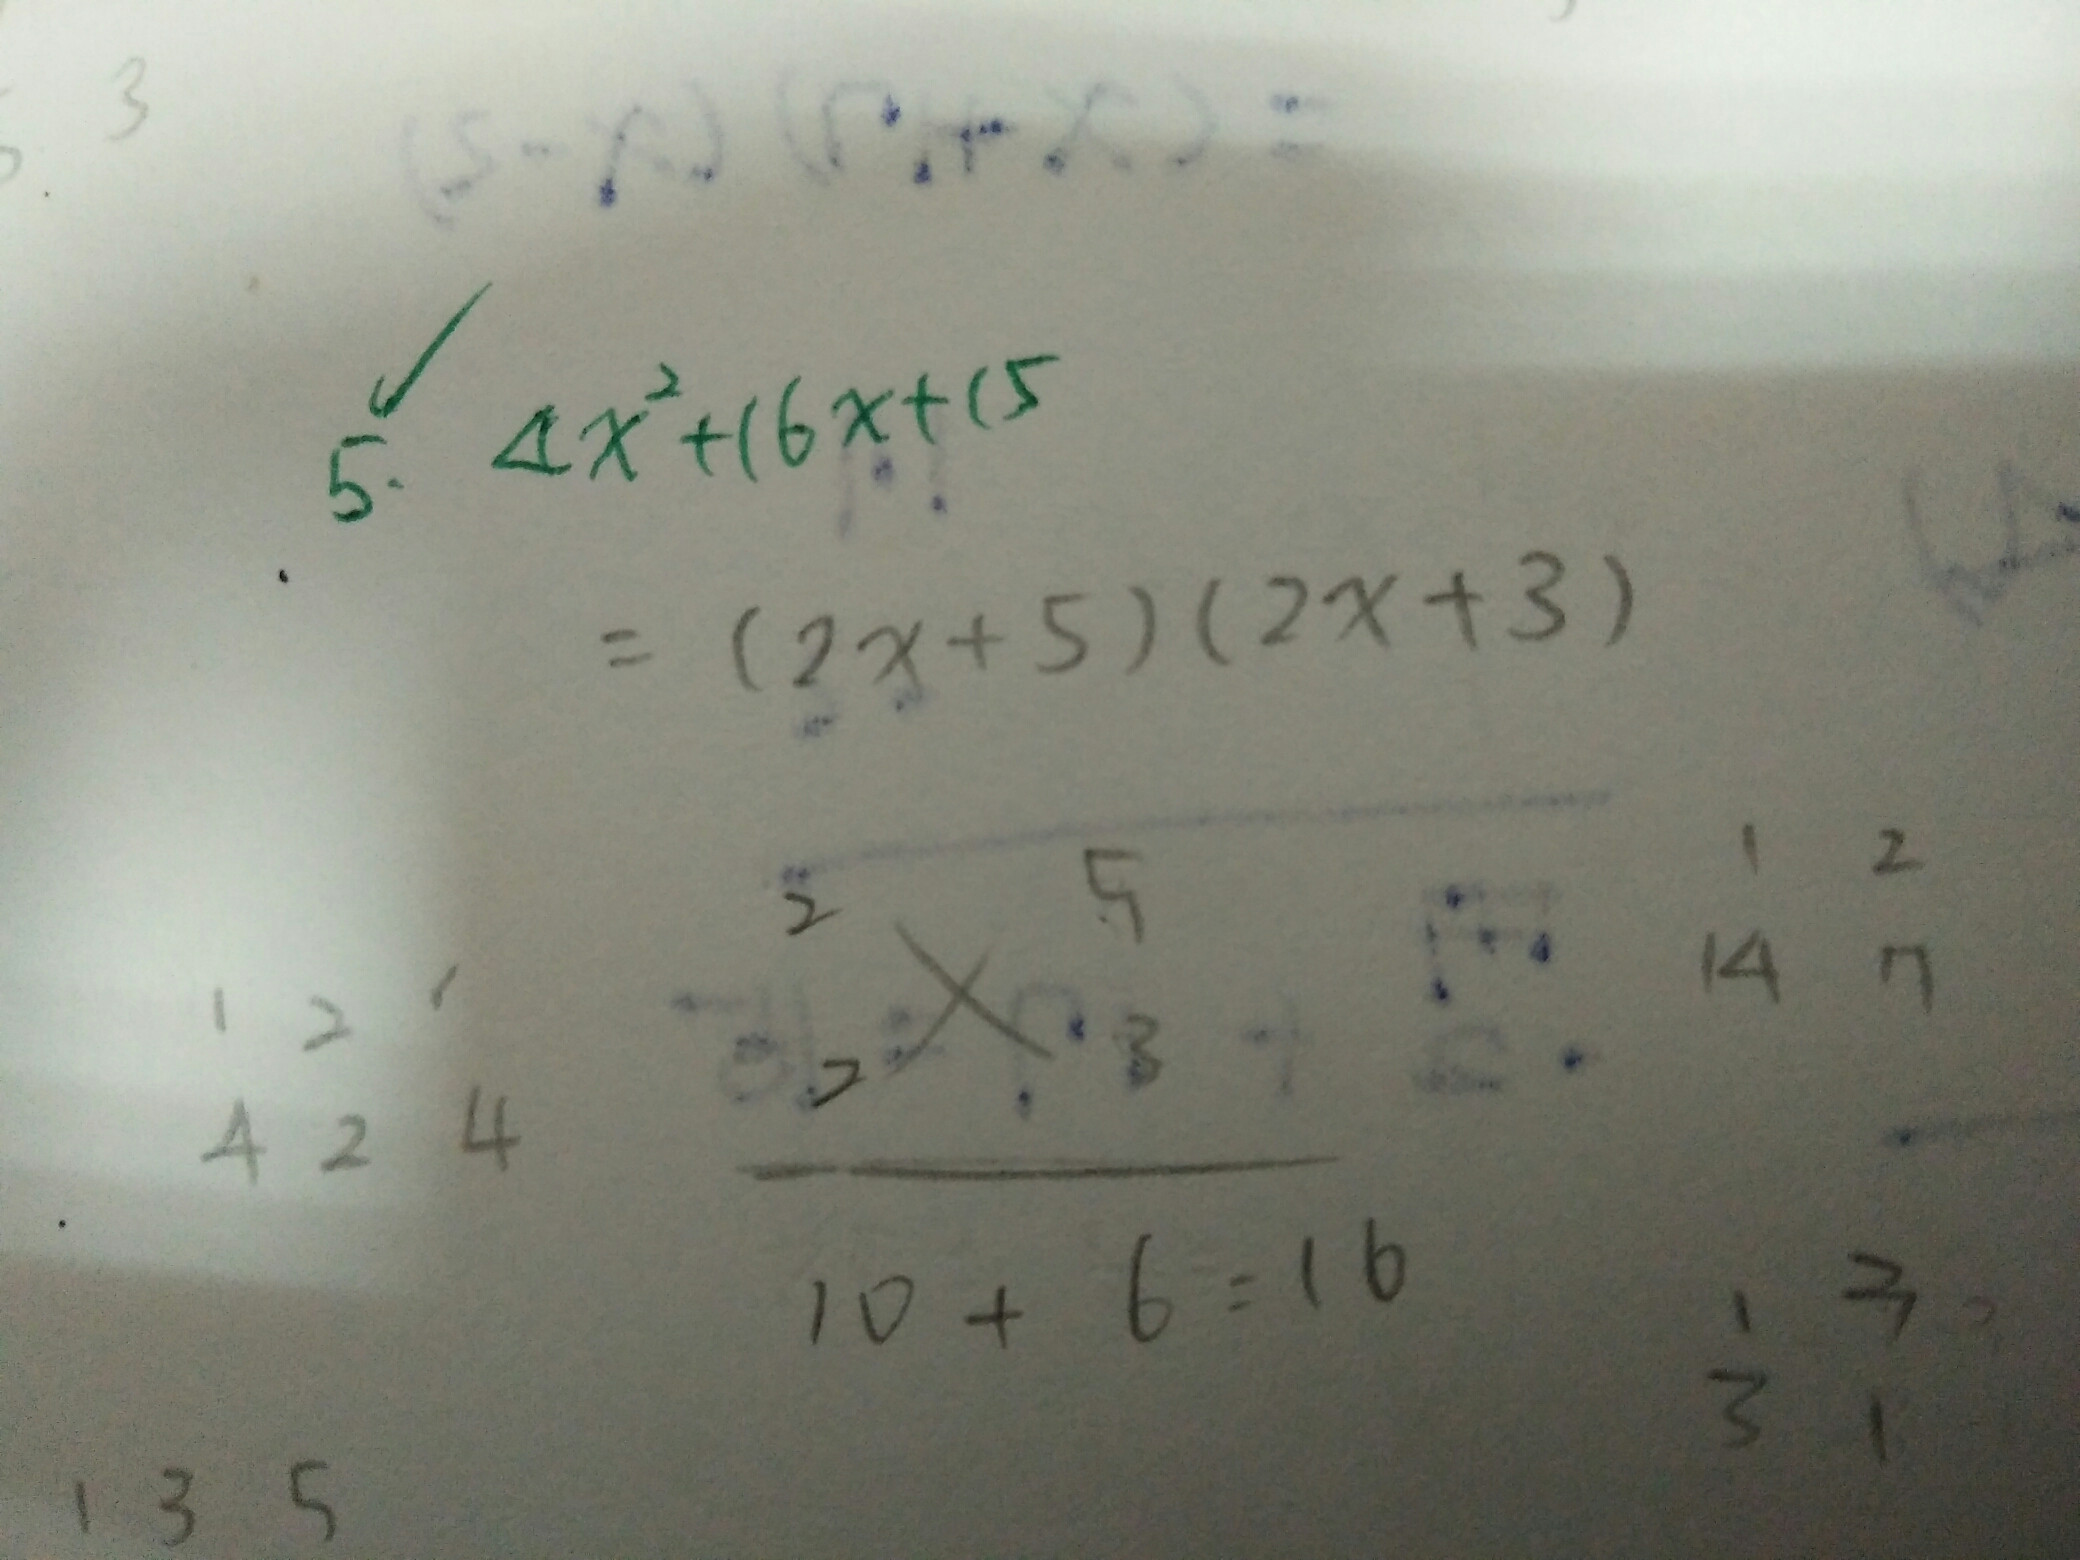 3
5. 4x²+16x+15
= (2x+5)(2x+3)
2 5
1 2
14 7
1 2 1
2 3
4 2 4
10 + 6 = 16
1
3 1
1 3 5